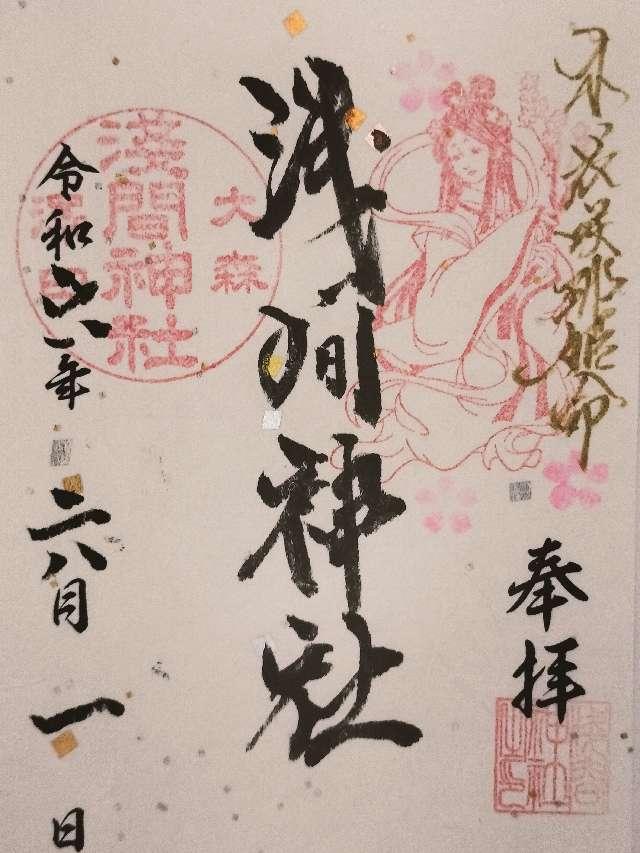 木之花咲耶姫命
奉拝
浅間神社
大森
淺間神社
令和六年
六月一日